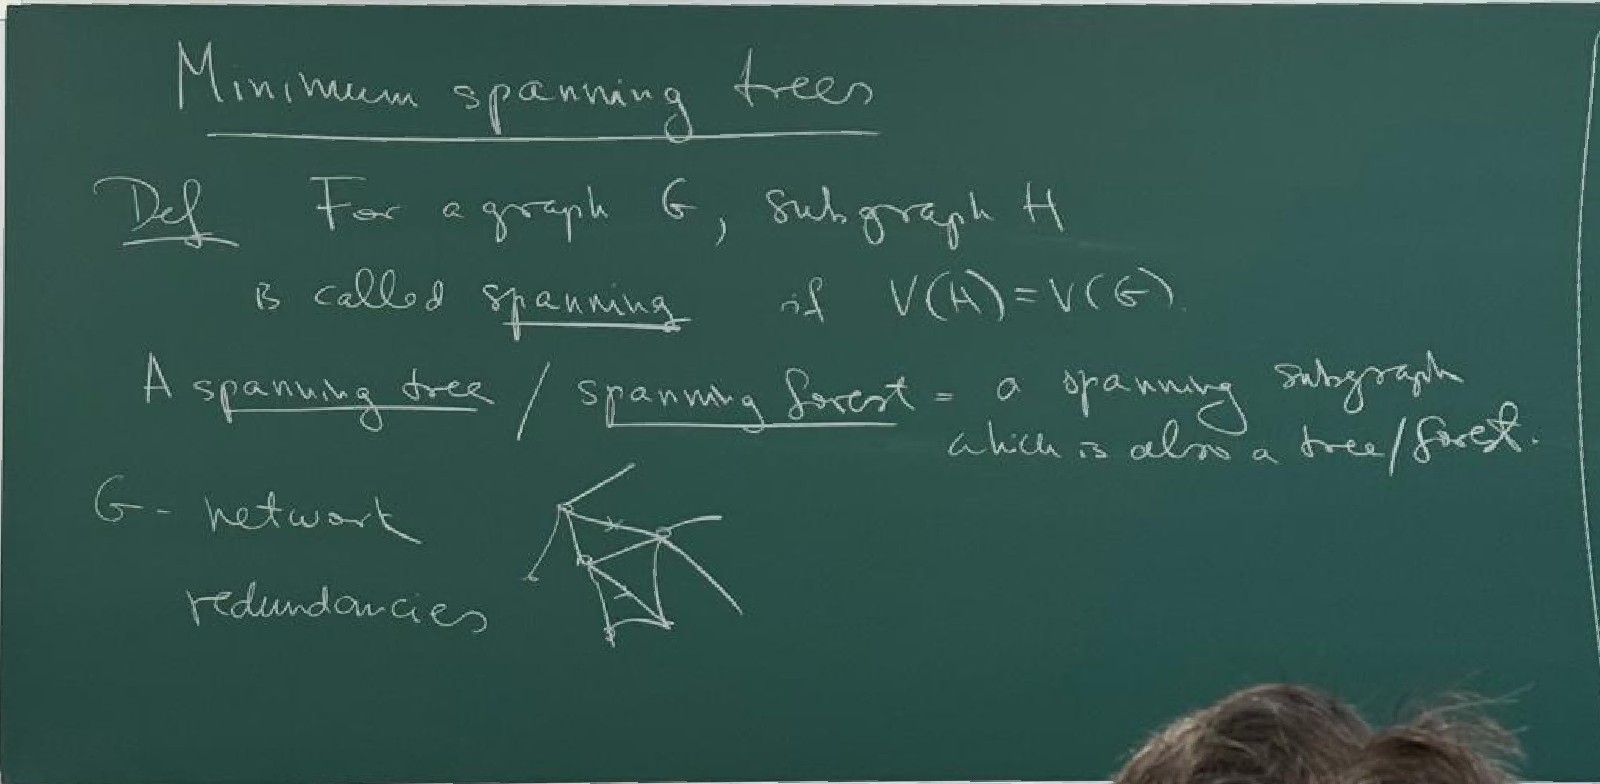 Minimum spanning trees
Def For a graph G, subgraph H
is called spanning if V(H)=V(G).
A spanning tree / spanning forest = a spanning subgraph
which is also a tree/forest.
G - network
redundancies